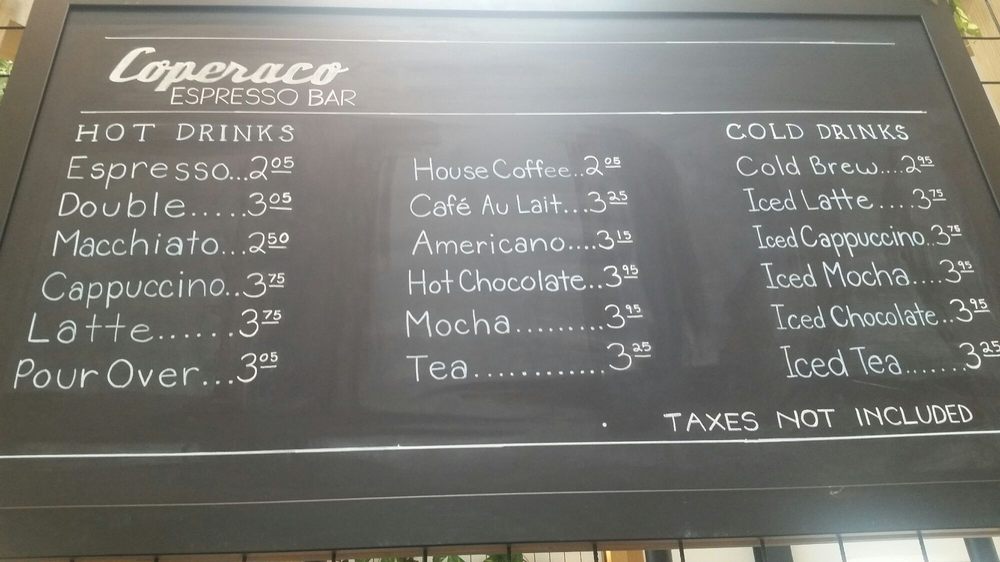 Coperaco
ESPRESSO BAR
HOT DRINKS
Espresso...2.05
Double.....3.05
Macchiato...2.50
Cappuccino..3.75
Latte......3.75
Pour Over...3.05
House Coffee..2.05
Café Au Lait...3.25
Americano....3.15
Hot Chocolate..3.95
Mocha.........3.95
Tea............3.25
COLD DRINKS
Cold Brew....2.95
Iced Latte....3.75
Iced Cappuccino..3.75
Iced Mocha....3.95
Iced Chocolate..3.95
Iced Tea.......3.25
TAXES NOT INCLUDED